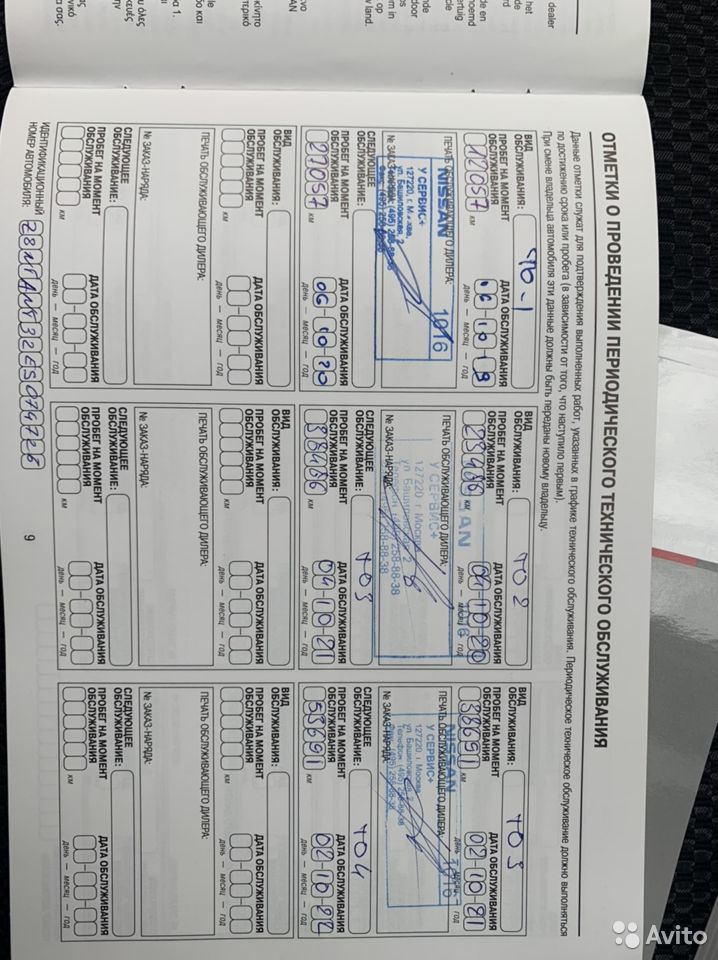 ОТМЕТКИ О ПРОВЕДЕНИИ ПЕРИОДИЧЕСКОГО ТЕХНИЧЕСКОГО ОБСЛУЖИВАНИЯ
Данные отметки служат для подтверждения выполненных работ, указанных в графике технического обслуживания. Периодическое техническое обслуживание должно выполняться
по достижению срока или пробега (в зависимости от того, что наступило первым).
При смене владельца автомобиля эти данные должны быть переданы новому владельцу.
ВИД ОБСЛУЖИВАНИЯ: ТО-1
ПРОБЕГ НА МОМЕНТ ОБСЛУЖИВАНИЯ
ДАТА ОБСЛУЖИВАНИЯ
12057 км 06-10-19
день — месяц — год
ПЕЧАТЬ ОБСЛУЖИВАЮЩЕГО ДИЛЕРА:
NISSAN 1016
У СЕРВИС+
127220, г. Москва,
ул. Башиловская, 2
№ ЗАКАЗ-НАРЯДА:
СЛЕДУЮЩЕЕ ОБСЛУЖИВАНИЕ:
ПРОБЕГ НА МОМЕНТ ОБСЛУЖИВАНИЯ
ДАТА ОБСЛУЖИВАНИЯ
27057 км 06-10-20
день — месяц — год
ВИД ОБСЛУЖИВАНИЯ: ТО2
ПРОБЕГ НА МОМЕНТ ОБСЛУЖИВАНИЯ
ДАТА ОБСЛУЖИВАНИЯ
км 04-10-20
день — месяц — год
ПЕЧАТЬ ОБСЛУЖИВАЮЩЕГО ДИЛЕРА:
1016
У СЕРВИС+
127220 г. Москва
№ ЗАКАЗ-НАРЯДА:
СЛЕДУЮЩЕЕ ОБСЛУЖИВАНИЕ: ТО3
ПРОБЕГ НА МОМЕНТ ОБСЛУЖИВАНИЯ
ДАТА ОБСЛУЖИВАНИЯ
км 04-10-21
день — месяц — год
ВИД ОБСЛУЖИВАНИЯ: ТО3
ПРОБЕГ НА МОМЕНТ ОБСЛУЖИВАНИЯ
ДАТА ОБСЛУЖИВАНИЯ
38691 км 02-10-21
месяц — год
ПЕЧАТЬ ОБСЛУЖИВАЮЩЕГО ДИЛЕРА:
NISSAN 1016
У СЕРВИС+
127220, г. Москва
ул. Башиловская, 2
№ ЗАКАЗ-НАРЯДА:
СЛЕДУЮЩЕЕ ОБСЛУЖИВАНИЕ: ТО4
ПРОБЕГ НА МОМЕНТ ОБСЛУЖИВАНИЯ
ДАТА ОБСЛУЖИВАНИЯ
53691 км 02-10-22
день — месяц — год
ВИД ОБСЛУЖИВАНИЯ:
ПРОБЕГ НА МОМЕНТ ОБСЛУЖИВАНИЯ
ДАТА ОБСЛУЖИВАНИЯ
км день — месяц — год
ПЕЧАТЬ ОБСЛУЖИВАЮЩЕГО ДИЛЕРА:
№ ЗАКАЗ-НАРЯДА:
СЛЕДУЮЩЕЕ ОБСЛУЖИВАНИЕ:
ПРОБЕГ НА МОМЕНТ ОБСЛУЖИВАНИЯ
ДАТА ОБСЛУЖИВАНИЯ
км день — месяц — год
ВИД ОБСЛУЖИВАНИЯ:
ПРОБЕГ НА МОМЕНТ ОБСЛУЖИВАНИЯ
ДАТА ОБСЛУЖИВАНИЯ
км день — месяц — год
ПЕЧАТЬ ОБСЛУЖИВАЮЩЕГО ДИЛЕРА:
№ ЗАКАЗ-НАРЯДА:
СЛЕДУЮЩЕЕ ОБСЛУЖИВАНИЕ:
ПРОБЕГ НА МОМЕНТ ОБСЛУЖИВАНИЯ
ДАТА ОБСЛУЖИВАНИЯ
км день — месяц — год
ВИД ОБСЛУЖИВАНИЯ:
ПРОБЕГ НА МОМЕНТ ОБСЛУЖИВАНИЯ
ДАТА ОБСЛУЖИВАНИЯ
км день — месяц — год
ПЕЧАТЬ ОБСЛУЖИВАЮЩЕГО ДИЛЕРА:
№ ЗАКАЗ-НАРЯДА:
СЛЕДУЮЩЕЕ ОБСЛУЖИВАНИЕ:
ПРОБЕГ НА МОМЕНТ ОБСЛУЖИВАНИЯ
ДАТА ОБСЛУЖИВАНИЯ
км день — месяц — год
ИДЕНТИФИКАЦИОННЫЙ
НОМЕР АВТОМОБИЛЯ:
9
Avito